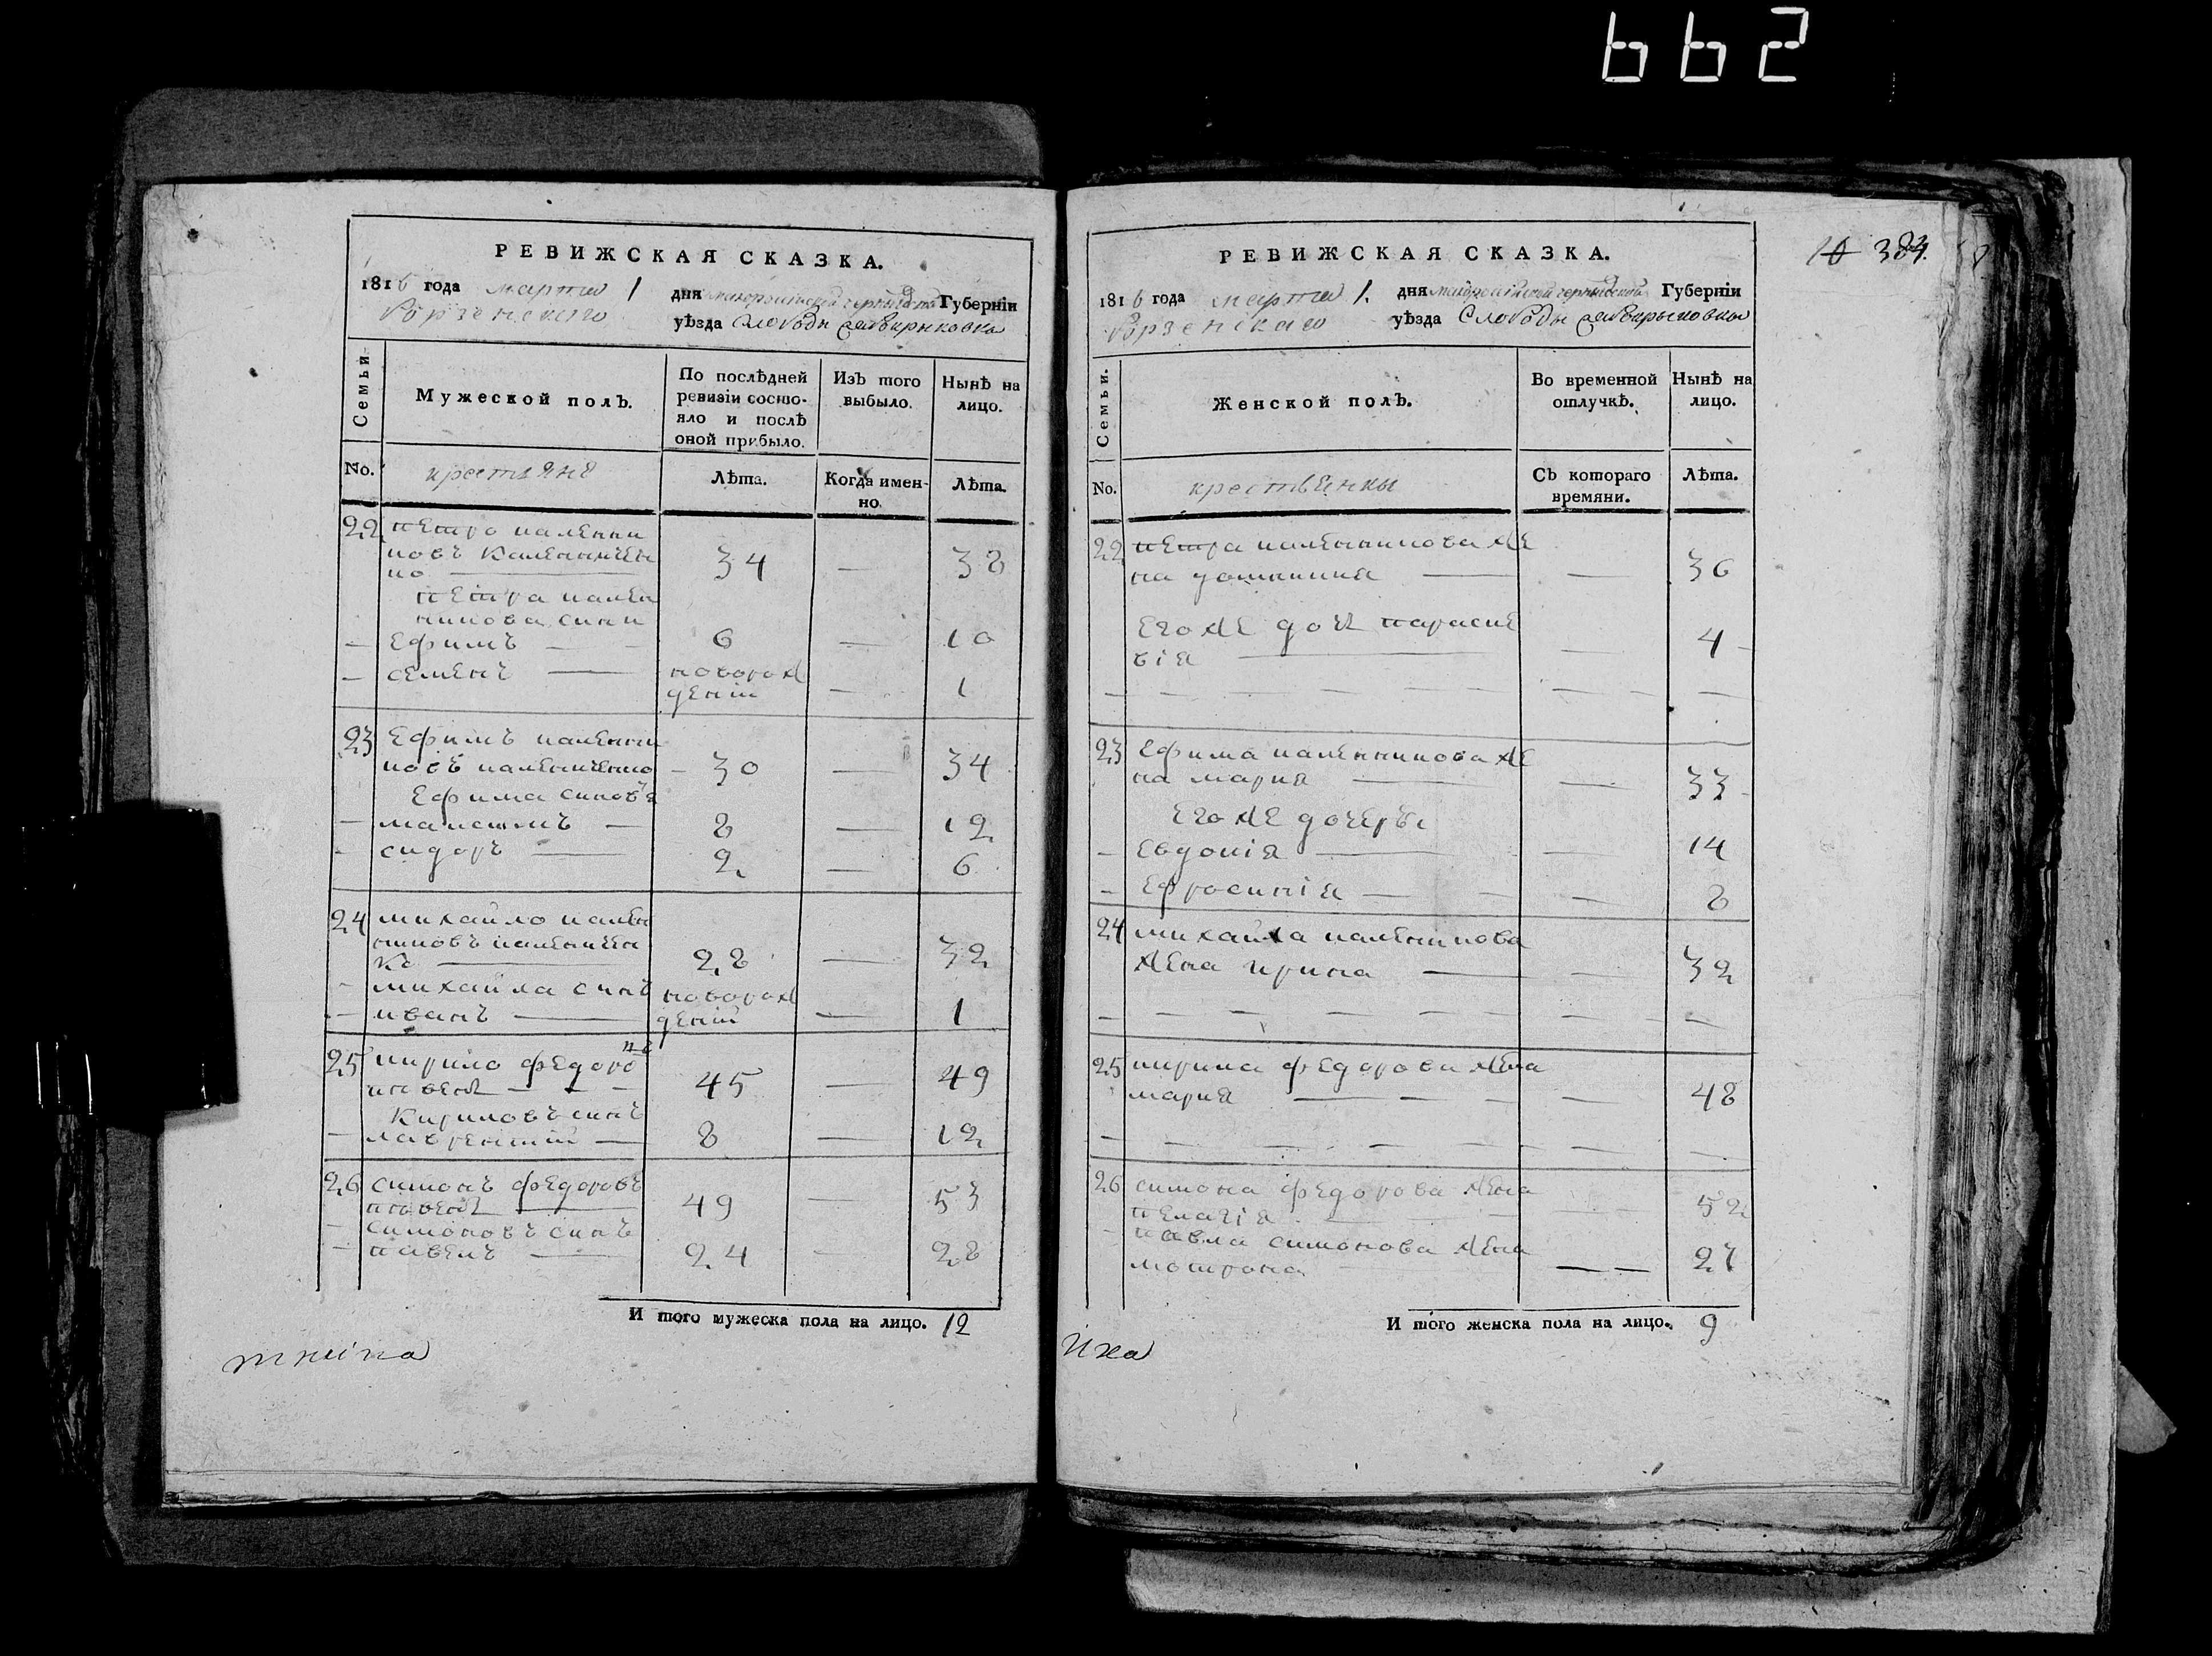 662
РЕВИЖСКАЯ СКАЗКА.
1816 года марта 1 дня малоросійской черниговской Губерніи
Борзенского уѣзда Слободы
Семьи.
Мужеской полъ.
По послѣдней ревизіи состояло и послѣ оной прибыло.
Изъ того выбыло.
Нынѣ на лицо.
No.
крестьяне
Лѣта.
Когда именно.
Лѣта.
22 петро калени
ковъ Каленичен
ко — 34 — 38
петра кале
никова сини
— Ефимъ — 6 — 10
— семенъ — поворож
деній — 1
23 Ефимъ калени
ковъ каленичено — 30 — 34
Ефима синовя
— максимъ — 8 — 12
— сидоръ — 2 — 6
24 михайло кале
никовъ каленичен
къ — 28 — 32
— михайла синъ новорож
— иванъ — деній — 1
25 кирило федоро
45 — 49
Кириловъ синъ
— лаврентій — 8 — 12
26 симонъ федоровъ
49 — 53
— симоновъ синъ
— павелъ — 24 — 28
И того мужеска пола на лицо. 12
10 384
РЕВИЖСКАЯ СКАЗКА.
1816 года марта 1. дня малоросійской черниговской Губерніи
Борзенскаго уѣзда Слободы
Семьи.
Женской полъ.
Во временной отлучкѣ.
Нынѣ на лицо.
No.
крестьянки
Съ котораго времяни.
Лѣта.
22 петра каленикова же
на домникия — — 36
Его же дочь параске
вія — — 4
23 Ефима каленикова же
на мария — — 33
Его же дочерѣ
— Евдокія — — 14
— Ефросинія — — 8
24 михайла каленикова
жена ирина — — 32
25 кирила федорова жена
мария — — 48
26 симона федорова жена
пелагія — — 52
— павла симонова жена
мотрона — — 27
И того женска пола на лицо. 9